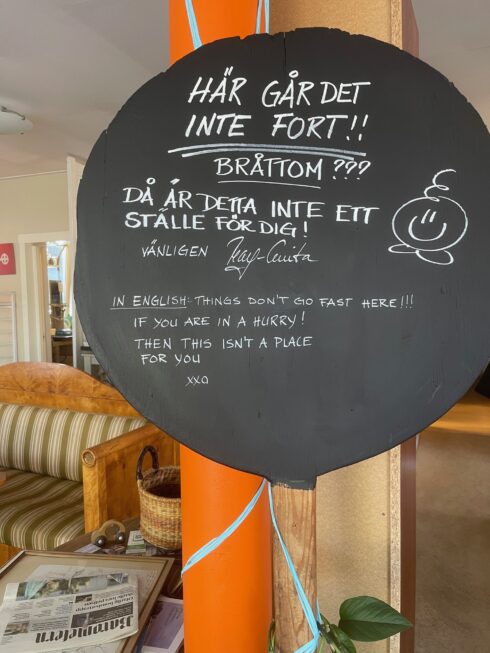 HÄR GÅR DET
INTE FORT!!
BRÅTTOM ???
DÅ ÄR DETTA INTE ETT
STÄLLE FÖR DIG!
VÄNLIGEN May-Anita
IN ENGLISH: THINGS DON'T GO FAST HERE!!!
IF YOU ARE IN A HURRY!
THEN THIS ISN'T A PLACE
FOR YOU
xxo
Barometern